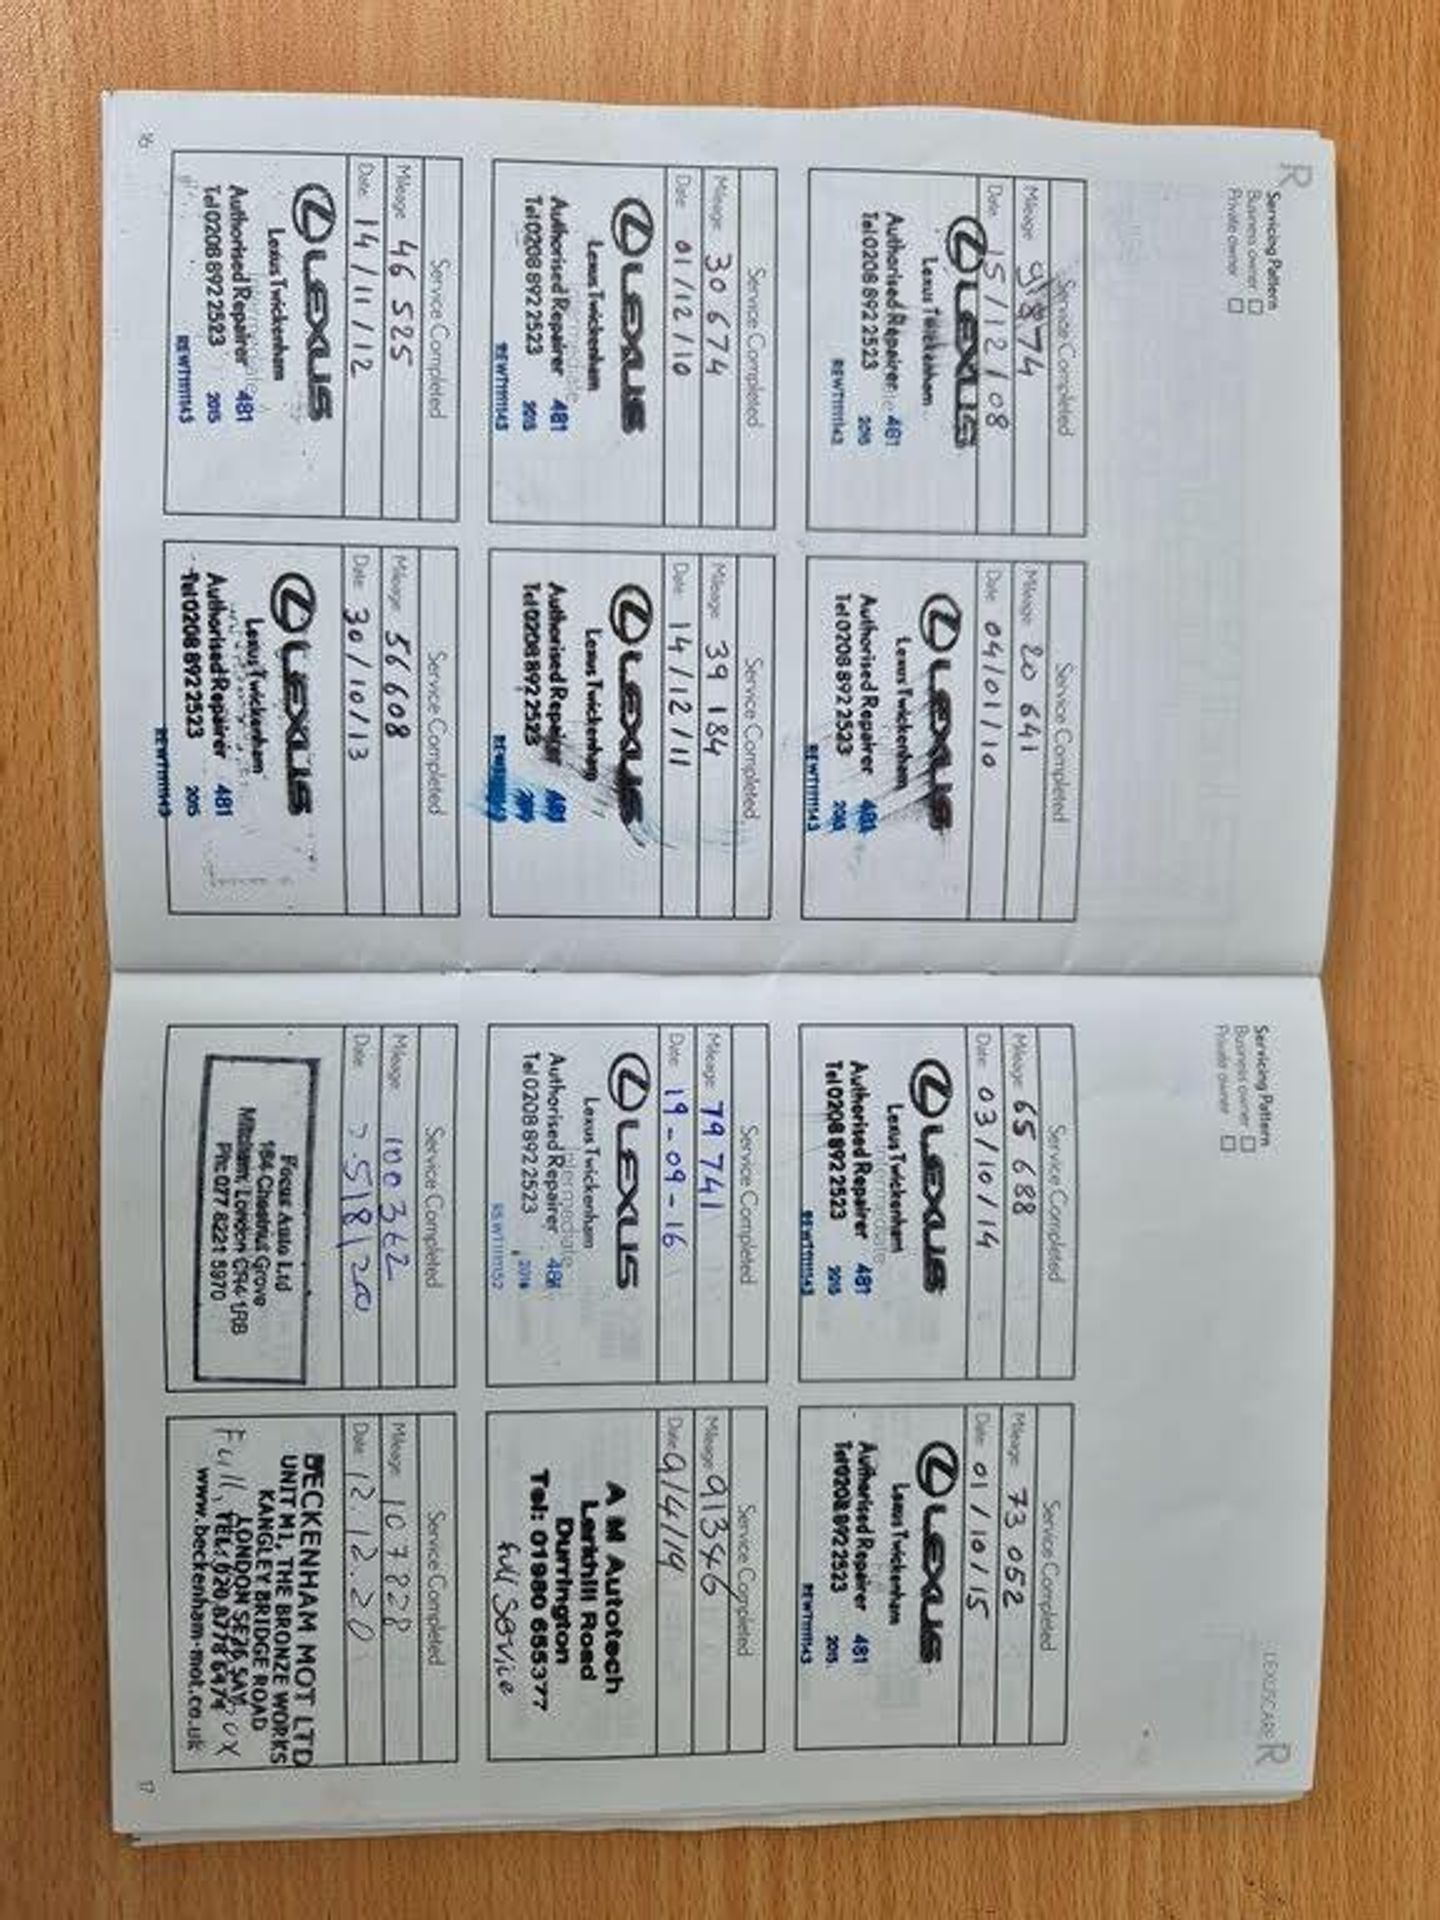 R
Servicing Pattern
Business owner
Private owner
Service Completed
Mileage 9874
Date 15/12/08
LEXUS
Lexus Twickenham
Authorised Repairer 481
Tel 0208 892 2523 2015
REWT1111143
Service Completed
Mileage 20 641
Date 04/01/10
LEXUS
Lexus Twickenham
Authorised Repairer 481
Tel 0208 892 2523
REWT1111143
Service Completed
Mileage 30 674
Date 01/12/10
LEXUS
Lexus Twickenham
Authorised Repairer 481
Tel 0208 892 2523 2015
REWT1111143
Service Completed
Mileage 39 184
Date 14/12/11
LEXUS
Lexus Twickenham
Authorised Repairer 481
Tel 0208 892 2523
Service Completed
Mileage 46 525
Date 14/11/12
LEXUS
Lexus Twickenham
Authorised Repairer 481
Tel 0208 892 2523 2015
REWT1111143
Service Completed
Mileage 56 608
Date 30/10/13
LEXUS
Lexus Twickenham
Authorised Repairer 481
Tel 0208 892 2523 2015
REWT1111143
16
LEXUSCARE R
Servicing Pattern
Business owner
Private owner
Service Completed
Mileage 65 688
Date 03/10/14
LEXUS
Lexus Twickenham
Intermediate
Authorised Repairer 481
Tel 0208 892 2523 2015
REWT1111143
Service Completed
Mileage 73 052
Date 01/10/15
LEXUS
Lexus Twickenham
Authorised Repairer 481
Tel 0208 892 2523 2015
REWT1111143
Service Completed
Mileage 79 741
Date 19-09-16
LEXUS
Lexus Twickenham
Intermediate
Authorised Repairer 481
Tel 0208 892 2523 2016
REWT1111152
Service Completed
Mileage 91346
Date 9/4/19
A M Autotech
Larkhill Road
Durrington
Tel: 01980 655377
full service
Service Completed
Mileage 100362
Date 518120
Focus Auto Ltd
184 Chestnut Grove
Mitcham, London CR4 1RB
Ph: 077 8221 5970
Service Completed
Mileage 107828
Date 12.12.20
BECKENHAM MOT LTD
UNIT M1, THE BRONZE WORKS
KANGLEY BRIDGE ROAD
LONDON SE26 5AY
TEL: 020 8778 6474
Full
www.beckenham-mot.co.uk
17